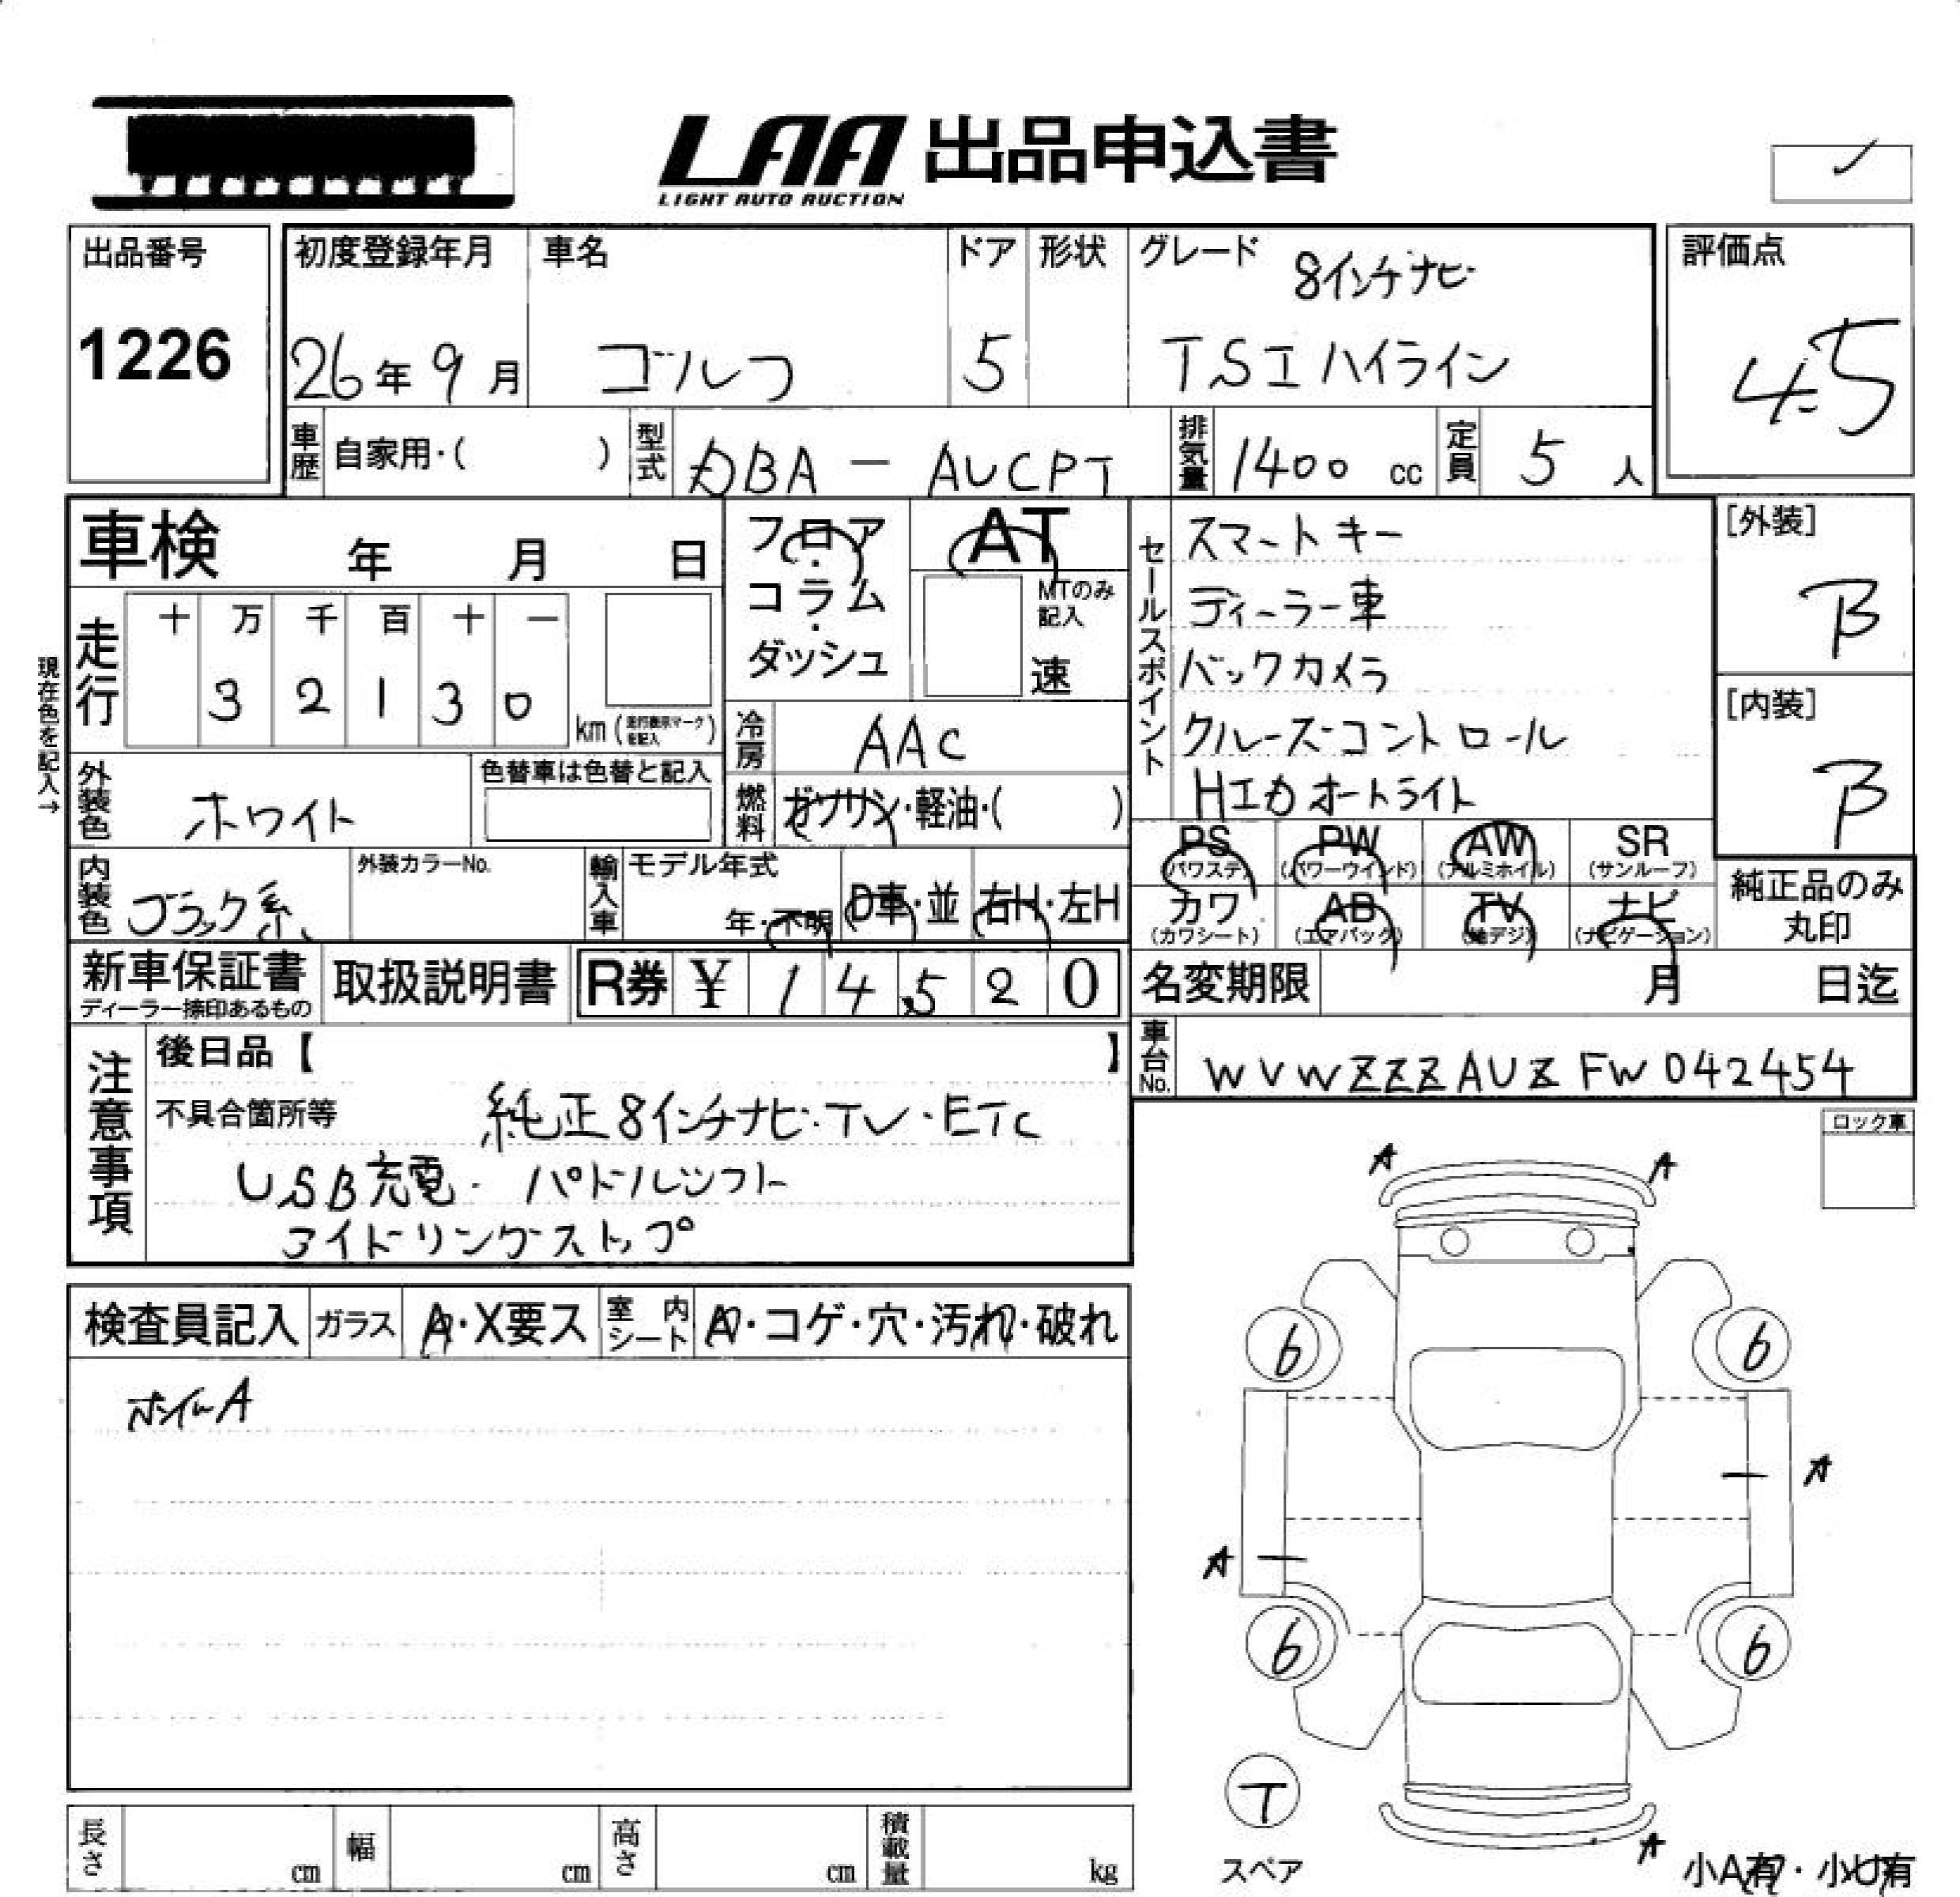 LAA 出品申込書
LIGHT AUTO AUCTION
出品番号
1226
初度登録年月
26年9月
車名
ゴルフ
ドア
5
形状
グレード
8インチナビ
TSIハイライン
評価点
4.5
車歴 自家用・( )
型式 DBA-AUCPT
排気量 1400 cc
定員 5人
車検 年 月 日
フロア・コラム・ダッシュ
AT
MTのみ記入
速
セールスポイント
スマートキー
ディーラー車
バックカメラ
クルーズコントロール
HIDオートライト
[外装]
B
[内装]
B
現在色を記入→
走行
十 万 千 百 十 一
3 2 1 3 0
km (走行表示マークを記入)
冷房 AAC
燃料 ガソリン・軽油・( )
外装色 ホワイト
色替車は色替と記入
内装色 ブラック系
外装カラーNo.
輸入車
モデル年式
年・不明
D車・並
右H・左H
PS (パワステ)
PW (パワーウインド)
AW (アルミホイル)
SR (サンルーフ)
カワ (カワシート)
AB (エアバック)
TV (地デジ)
ナビ (ナビゲーション)
純正品のみ丸印
新車保証書
ディーラー捺印あるもの
取扱説明書
R券 ¥ 14520
名変期限 月 日迄
車台No. WVWZZZAUZFW042454
注意事項
後日品【 】
不具合箇所等 純正8インチナビ・TV・ETC
USB充電・パドルシフト
アイドリングストップ
ロック車
検査員記入
ガラス A・X要ス
室内シート A・コゲ・穴・汚れ・破れ
ホイールA
A A
6 6
A
A
6 6
T
スペア
A
小A有・小U有
長さ cm
幅 cm
高さ cm
積載量 kg